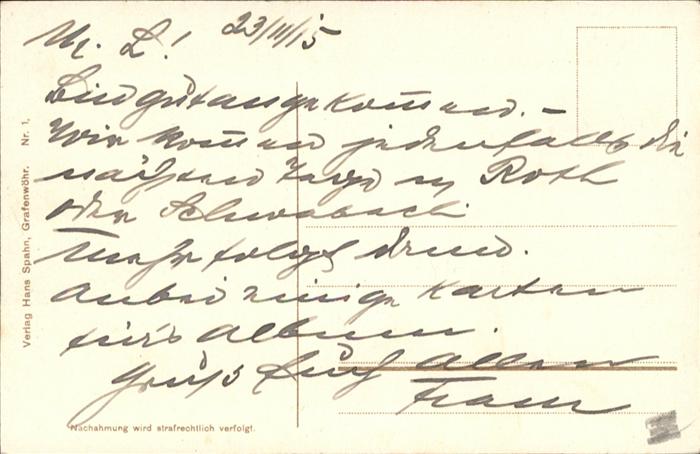 23/II/15
M. L.!
Bin gut angekommen. –
Wir kommen jedenfalls die
nächsten Tage n. Roth
oder Schwabach
Mehr folgt
Anbei einige Karten
für's Album.
Gruß Euch Allen
Franz
Verlag Hans Spahn, Grafenwöhr. Nr. 1.
Nachahmung wird strafrechtlich verfolgt.